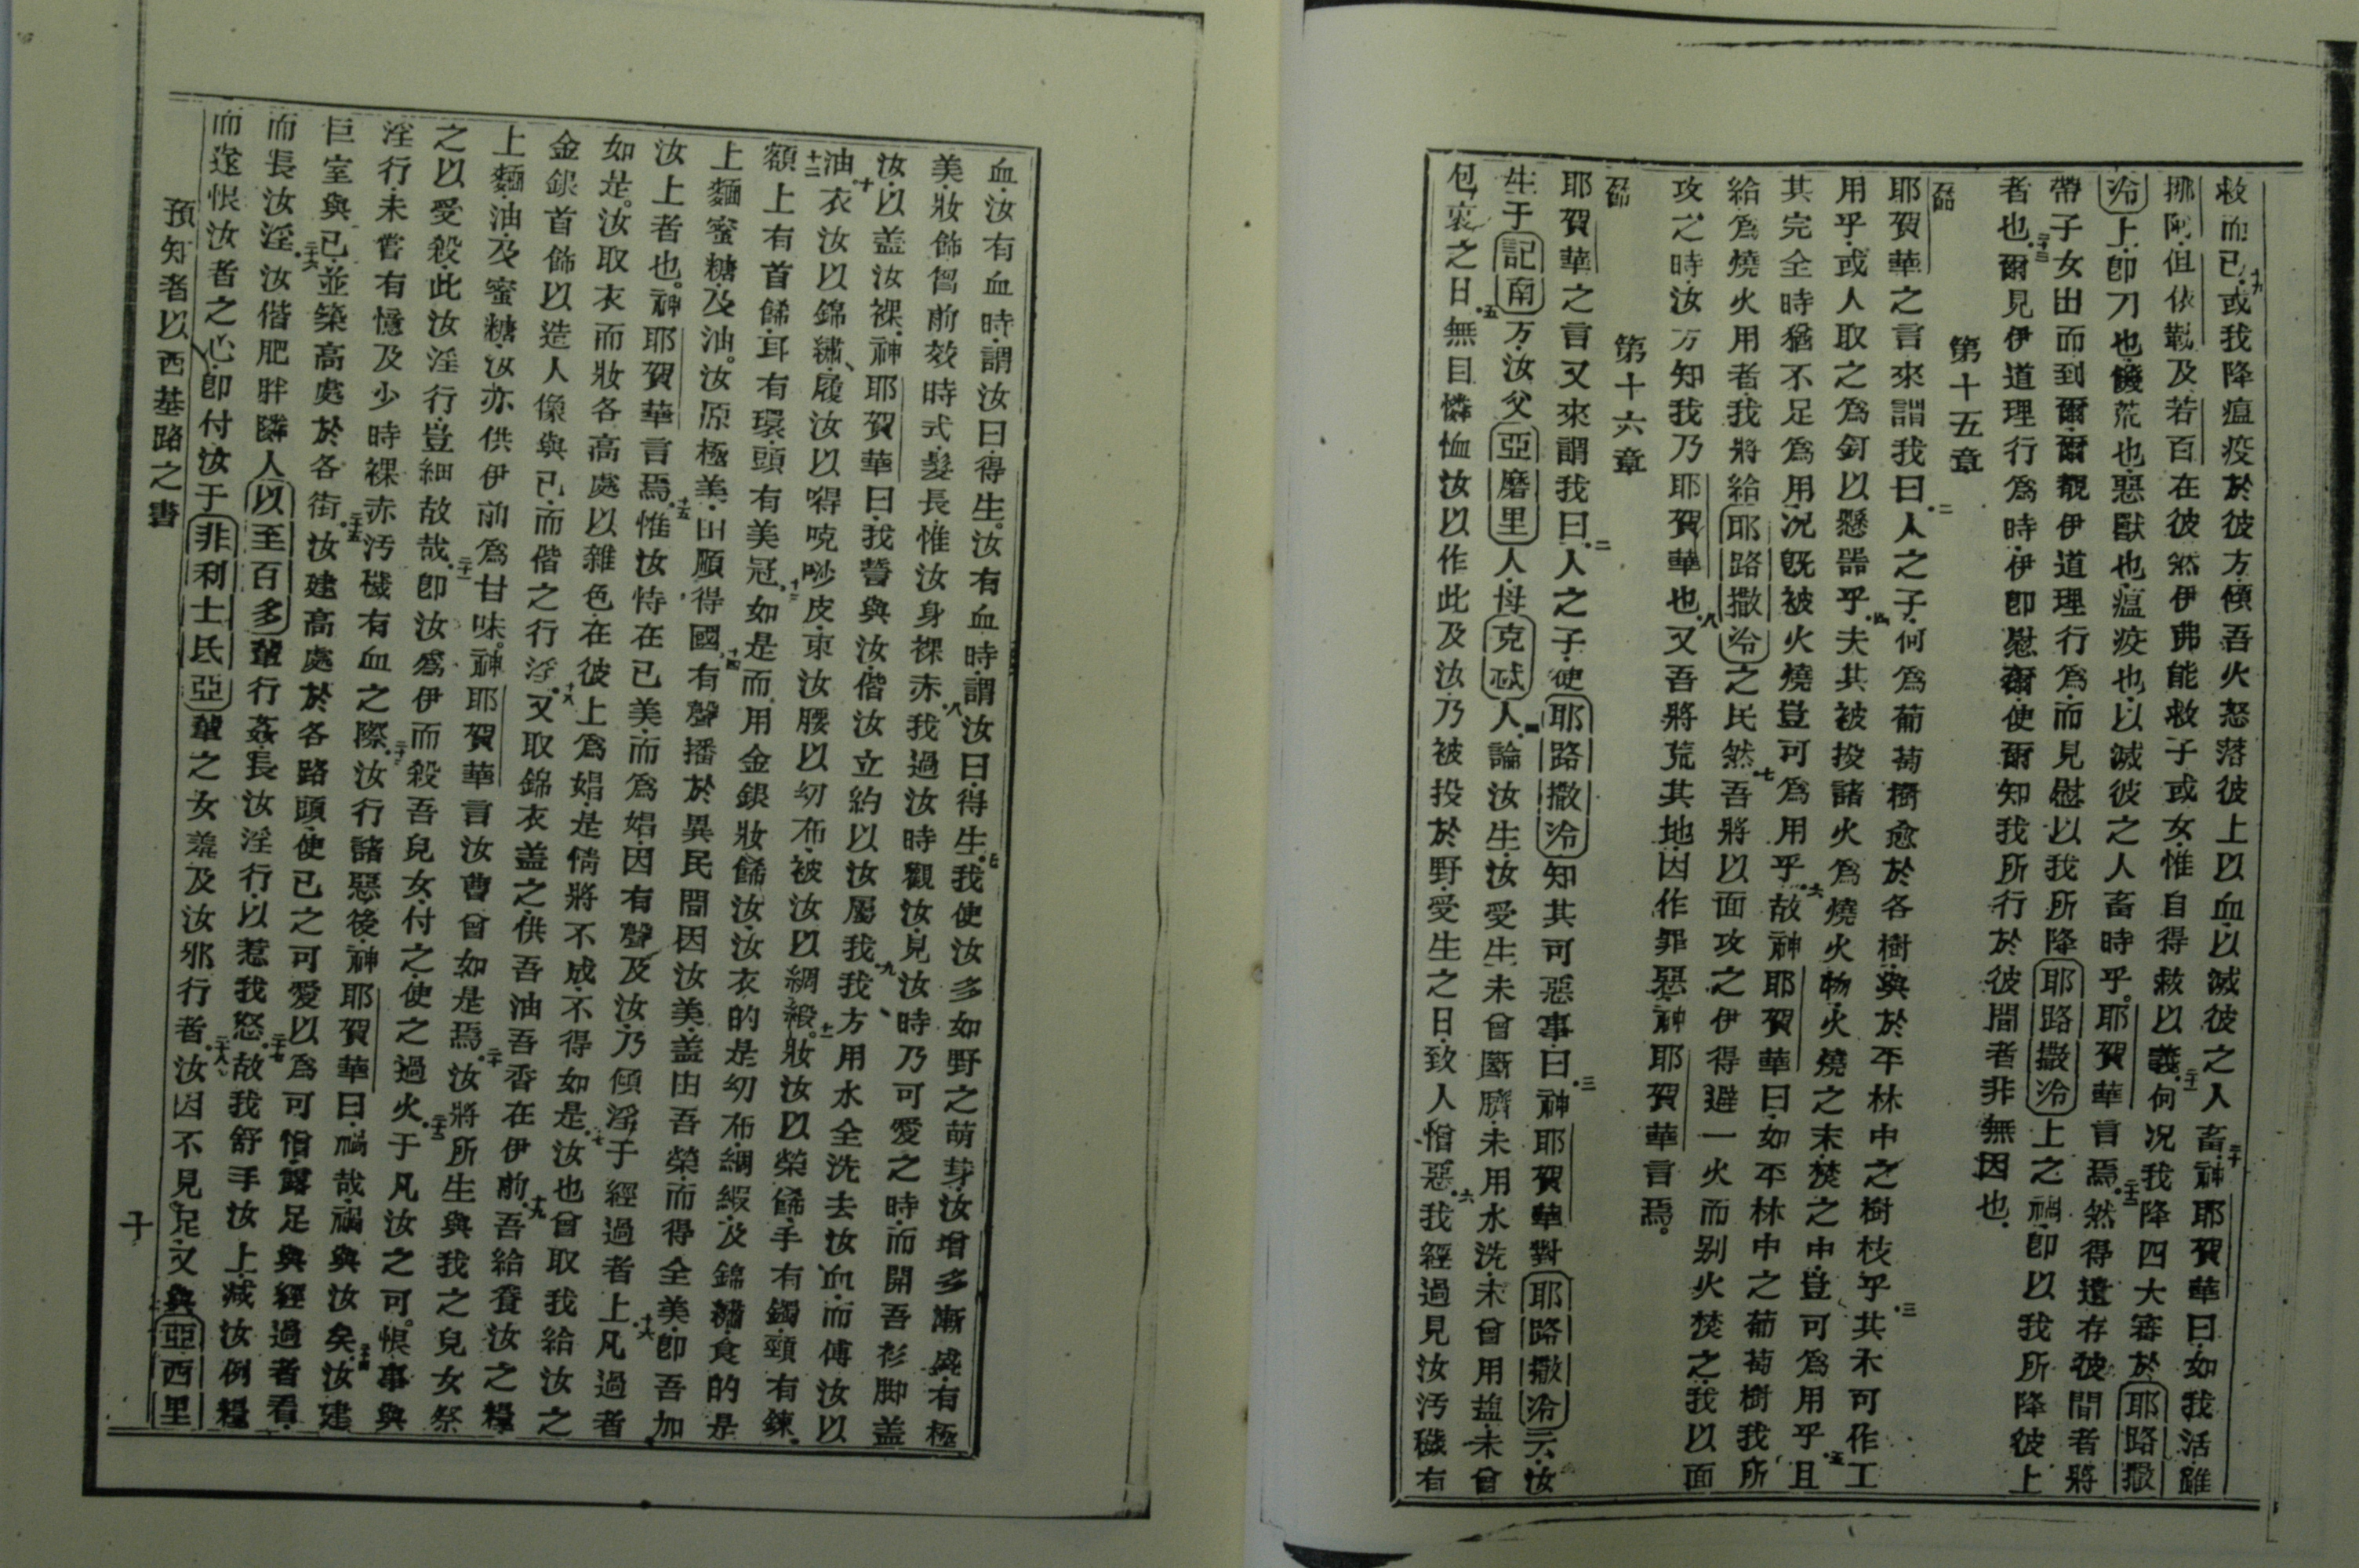 救而已十九或我降瘟疫於彼方傾吾火怒落彼上以血以滅彼之人畜二十神耶賀華曰如我活雖
挪阿但依勒及若百在彼然伊弗能救子或女惟自得救以義二十一何况我降四大審於耶路撒
冷上卽刀也饑荒也惡獸也瘟疫也以滅彼之人畜時乎耶賀華言焉二十二然得遺存彼間者將
帶子女出而到爾爾覩伊道理行爲而見慰以我所降耶路撒冷上之禍卽以我所降彼上
者也二十三爾見伊道理行爲時伊卽慰爾使爾知我所行於彼間者非無因也
第十五章
耶賀華之言來謂我曰二人之子何爲葡萄樹愈於各樹與於平林中之樹枝乎三其木可作工
用乎或人取之爲釘以懸器乎四夫其被投諸火爲燒火物火燒之末焚之中豈可爲用乎五且
其完全時猶不足爲用况旣被火燒豈可爲用乎六故神耶賀華曰如平林中之葡萄樹我所
給爲燒火用者我將給耶路撒冷之民然七吾將以面攻之伊得避一火而别火焚之我以面
攻之時汝方知我乃耶賀華也八又吾將荒其地因作罪惡神耶賀華言焉
第十六章
耶賀華之言又來謂我曰二人之子使耶路撒冷知其可惡事曰三神耶賀華對耶路撒冷云汝
生于記南方汝父亞磨里人母克忒人論汝生汝受生未曾斷臍未用水洗未曾用鹽未曾
包裹之日五無目憐恤汝以作此及汝乃被投於野受生之日致人憎惡六我經過見汝汚穢有
血汝有血時謂汝曰得生汝有血時謂汝曰得生七我使汝多如野之萌芽汝增多漸盛有極
美妝飾胷前效時式髮長惟汝身裸赤八我過汝時觀汝見汝時乃可愛之時而開吾衫脚盖
汝以盖汝裸神耶賀華曰我誓與汝偕汝立約以汝屬我九我方用水全洗去汝血而傅汝以
油十衣汝以錦繡履汝以皮東汝腰以幼布被汝以綢緞十一妝汝以榮餙手有鐲頸有鍊
十二額上有首餙耳有環頭有美冠十三如是而用金銀妝餙汝汝衣的是幼布綢緞及錦繡食的是
上麵蜜糖及油汝原極美田願得國十四有聲播於異民間因汝美盖由吾榮而得全美卽吾加
汝上者也神耶賀華言焉十五惟汝恃在已美而爲娼因有聲及汝乃傾淫于經過者上凡過者
如是十六汝取衣而妝各高處以雜色在彼上爲娼是倩將不成不得如是十七汝也曾取我給汝之
金銀首飾以造人像與已而偕之行淫十八又取錦衣盖之供吾油吾香在伊前十九吾給養汝之糧
上麵油及蜜糖汝亦供伊前爲甘味神耶賀華言汝曹曾如是焉二十汝將所生與我之兒女祭
之以受殺此汝淫行豈細故哉二十一卽汝爲伊而殺吾兒女付之使之過火二十二于凡汝之可恨事與
淫行未嘗有憶及少時裸赤汚穢有血之際二十三汝行諸惡後神耶賀華曰禍哉禍與汝矣二十四汝建
巨室與已並築高處於各街二十五汝建高處於各路頭使已之可愛以爲可憎露足與經過者看
而長汝淫二十六汝偕肥胖隣人以至百多輩行姦長汝淫行以惹我怒二十七故我舒手汝上減汝例糧
而遂恨汝者之心卽付汝于非利士氏亞輩之女羞及汝邪行者二十八汝因不見足又與亞西里
預知者以西基路之書
十